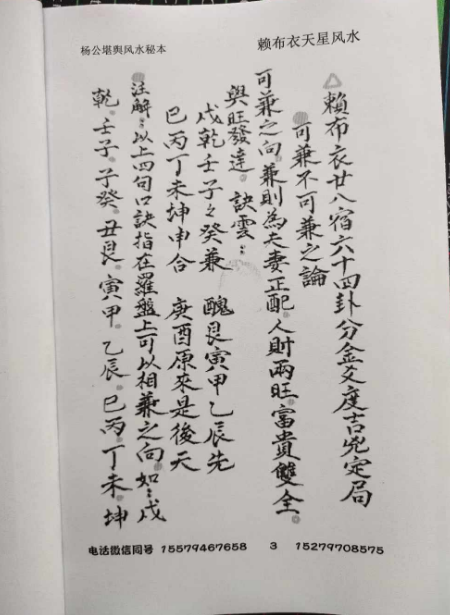 杨公堪舆风水秘本
赖布衣天星风水
△賴布衣廿八宿六十四卦分金爻度吉兇定局
可兼不可兼之論
可兼之向。兼則為夫妻正配。人財兩旺。富貴雙全。
與旺發達。訣雲：
戌乾壬子之癸兼 醜艮寅甲乙辰先
巳丙丁未坤申合 庚酉原來是後天
注解：以上四句口訣指在羅盤上可以相兼之向。如：戌
乾。壬子。子癸。丑艮。寅甲。乙辰。巳丙。丁未。坤
电话微信同号 15579467658 3 15279708575